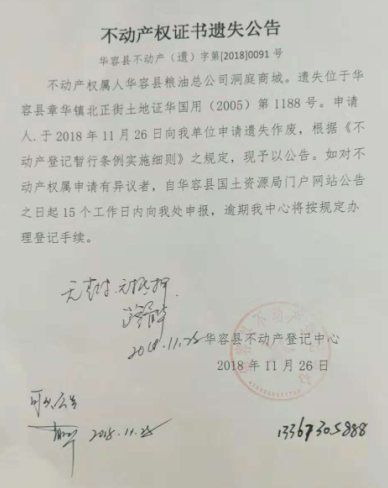 不动产权证书遗失公告
华容县不动产（遗）字第[2018]0091 号
不动产权属人华容县粮油总公司洞庭商城。遗失位于华
容县章华镇北正街土地证华国用（2005）第 1188 号。申请
人.于 2018 年 11 月 26 日向我单位申请遗失作废，根据《不
动产登记暂行条例实施细则》之规定，现予以公告。如对不
动产权属申请有异议者，自华容县国土资源局门户网站公告
之日起 15 个工作日内向我处申报，逾期我中心将按规定办
理登记手续。
无查封 无抵押
2018.11.26
华容县不动产登记中心
2018 年 11 月 26 日
可公告
2018.11.26
13367305888